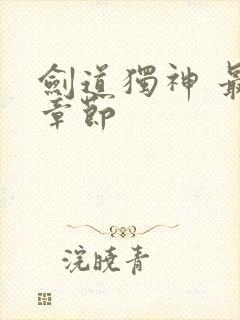 劍道獨神 最
章節
浣曉青